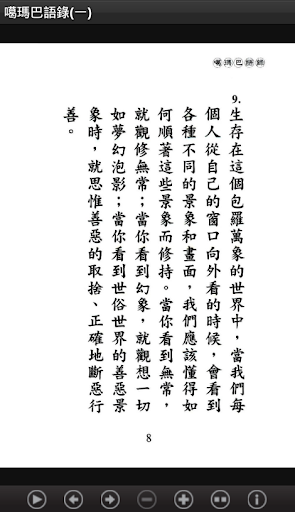 噶瑪巴語錄(一)
噶瑪巴語錄
9.
生存在這個包羅萬象的世界中，當我們每
個人從自己的窗口向外看的時候，會看到
各種不同的景象和畫面，我們應該懂得如
何順著這些景象而修持。當你看到無常，
就觀修無常；當你看到幻象，就觀想一切
如夢幻泡影；當你看到世俗世界的善惡景
象時，就思惟善惡的取捨、正確地斷惡行
善。
8